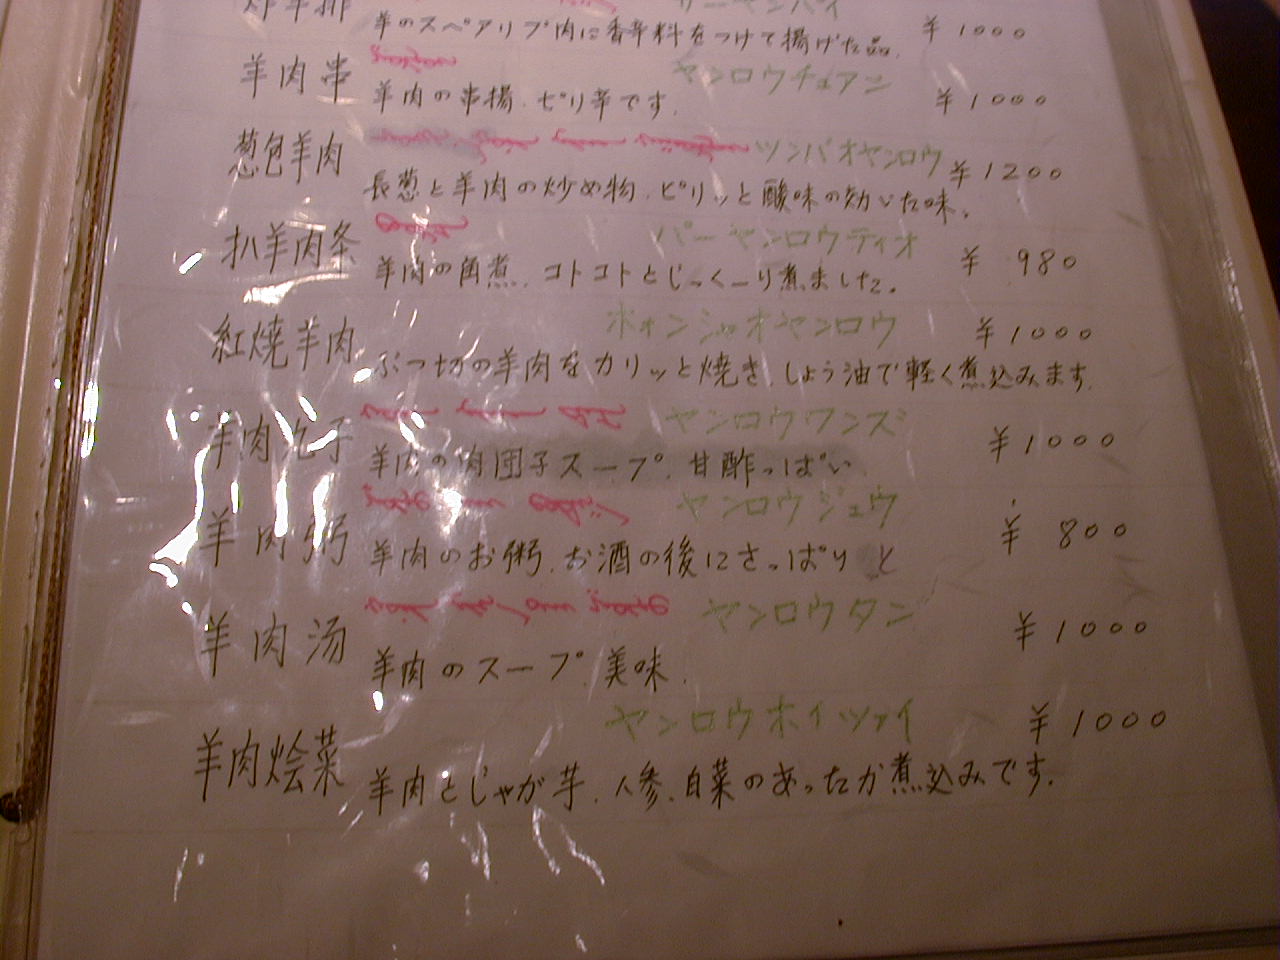 炸羊排 ザーヤンパイ
羊のスペアリブ肉に香辛料をつけて揚げた品. ¥1000
羊肉串 ヤンロウチュアン
羊肉の串揚.ピリ辛です. ¥1000
葱包羊肉 ツンバオヤンロウ ¥1200
長葱と羊肉の炒め物.ピリッと酸味の効いた味.
扒羊肉条 パーヤンロウティオ ¥980
羊肉の角煮.コトコトとじっくーり煮ました.
紅焼羊肉 ホォンシャオヤンロウ ¥1000
ぶつ切の羊肉をカリッと焼き.しょう油で軽く煮込みます.
羊肉丸子 ヤンロウワンズ ¥1000
羊肉の肉団子スープ.甘酢っぱい.
羊肉粥 ヤンロウジュウ ¥800
羊肉のお粥.お酒の後にさっぱりと
羊肉汤 ヤンロウタン ¥1000
羊肉のスープ.美味.
羊肉烩菜 ヤンロウホイツァイ ¥1000
羊肉とじゃが芋.人参.白菜のあったか煮込みです.